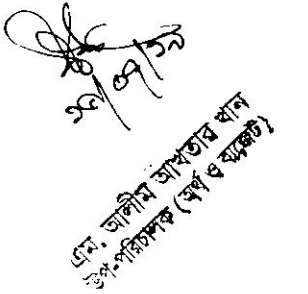 এম. আলীম আখতার খান
উপ-পরিচালক (অর্থ ও বাজেট)